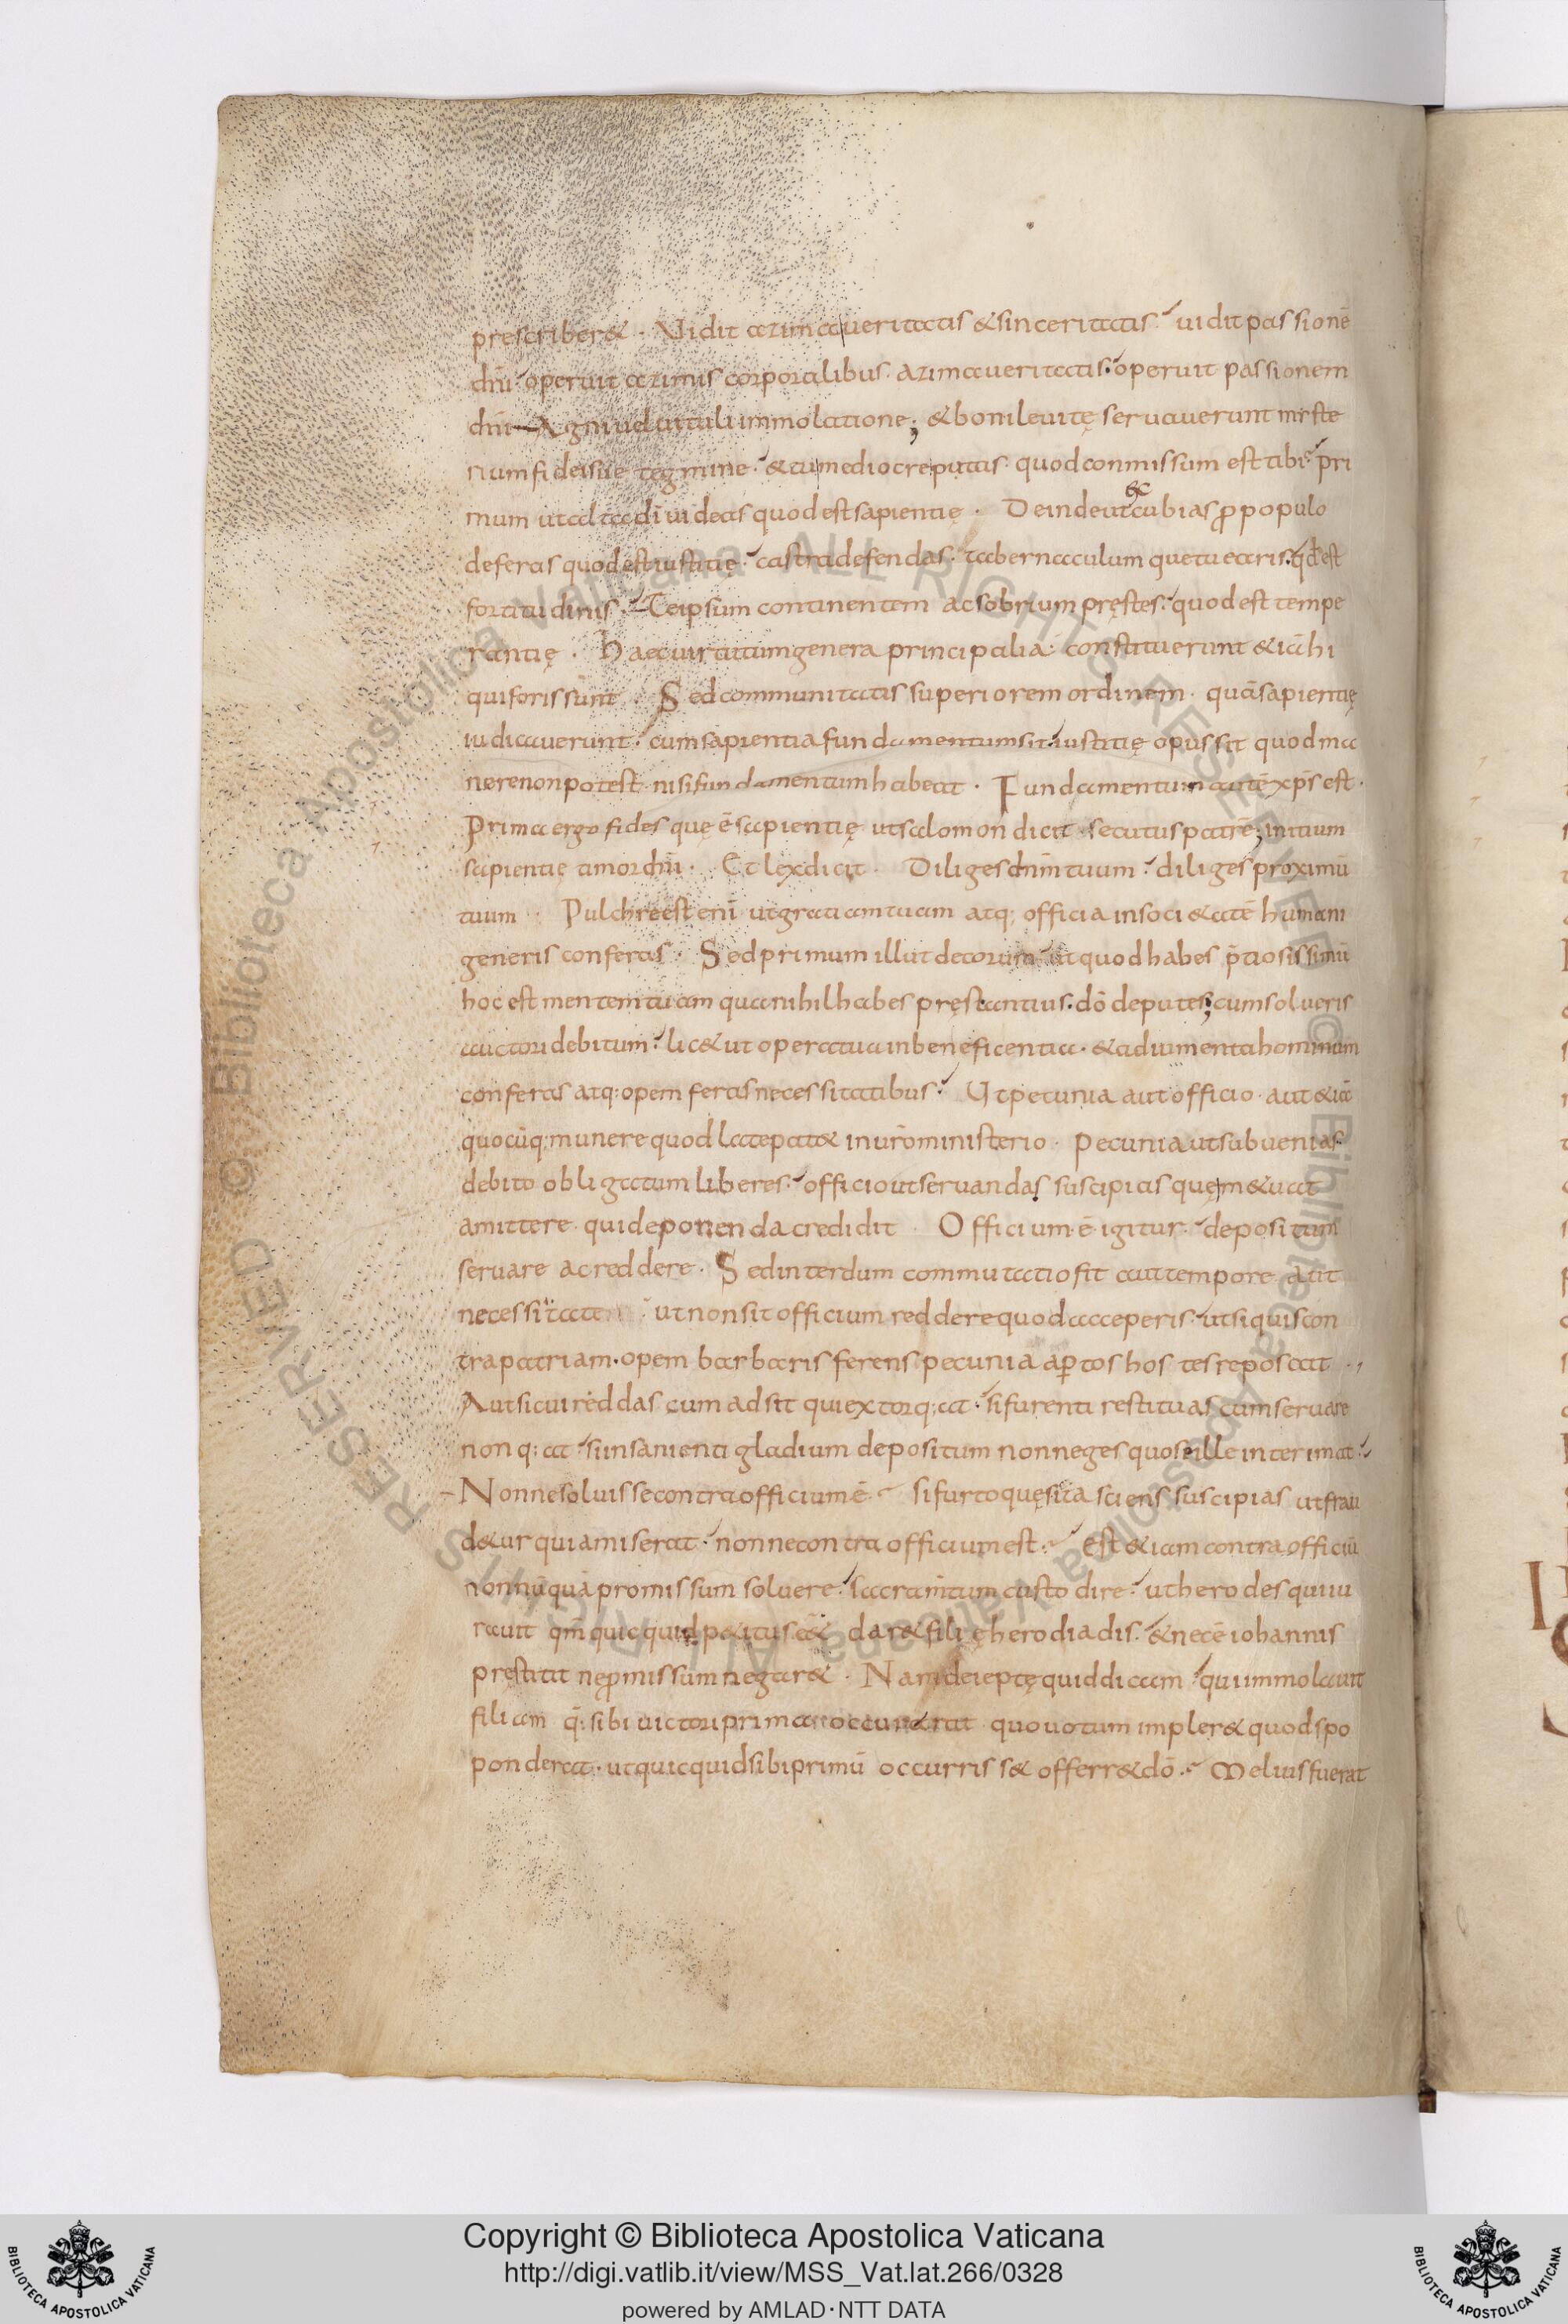 prescriber& · Vidit azima ueritatis & sinceritatis · uidit passionē
dn̄i · operuit azimis corporalibus azima ueritatis · operuit passionem
dn̄i Agni uel uituli immolatione ; & boni leuitę seruauerunt miste
rium fidei sue tegmine · & tu mediocre putas quod conmissum est tibi · pri
mum ut alta dī uideas quod est sapientię · Deinde ut &c cubias ꝓ populo
deferas quod est iustitię · castra defendas · tabernaculum que tuearis · qd̄ est
fortitudinis · Te ipsum continentem ac sobrium pręstes · quod est tempe
rantię · Haec uirtutum genera principalia constituerunt & iā hi
qui foris sunt · Sed communitatis superiorem ordinem · quā sapientię
iudicauerunt · cum sapientia fundamentum sit · iustitię opus sit quod ma
nere non potest · nisi fundamentum habeat · Fundamentum autē xp̄s est ·
Prima ergo fides quę ē sapientię ut salomon dicit · secutus patrē ; initium
sapientię timor dn̄i · Et lex dicit · Diliges dn̄m tuum · diliges proximū
tuum · Pulchre est enī ut gratiam tuam atq; officia in soci&atē humani
generis conferas · Sed primum illut decorum · ut quod habes p̄tiosissimū
hoc est mentem tuam qua nihil habes pręstantius · dō deputes ; cum solueris
auctori debitum · lic& ut opera tua in beneficentia · & adiumenta hominum
conferas atq: opem feras necessitatibus · Ut petunia aut officio · aut &iā
quocūq; munere quod late pat& in ur̄o ministerio · Pecunia ut subuenias
debito obligatum liberes · officio ut seruandas suscipias quęm &uat
amittere · qui deponenda credidit · Officium ē igitur · depositum
seruare ac reddere · Sed interdum commutatio fit aut tempore aut
necessitate · ut non sit officium reddere quod acceperis · ut si quis con
tra patriam · opem barbaris ferens pecunia aꝑtos hostes reposcat · ,
Aut si cui reddas cum adsit qui extorq;at · si furenti restituas cum seruare
non q; at · si insanienti gladium depositum non neges quo se ille interimat ·
- Nonne soluisse contra officium ē · si furto quęsita sciens suscipias ut frau
d&ur qui amiserat · nonne contra officium est · Est &iam contra officiū
nonnūquā promissum soluere · sacram̄tum custodire · ut herodes qui iu
rauit qm̄ quicquid p&itus ēē& dar& filię herodiadis · & necē iohannis
pręstitit ne ꝓmissum negar& · Nam de ieptę quid dicam · qui immolauit
filiam q̄; sibi uictori prima occurrerat quo uotum impler& quod spo
ponderat · ut quicquid sibi primū occurriss& offerr& dō · Melius fuerat
Copyright © Biblioteca Apostolica Vaticana
http://digi.vatlib.it/view/MSS_Vat.lat.266/0328
powered by AMLAD·NTT DATA